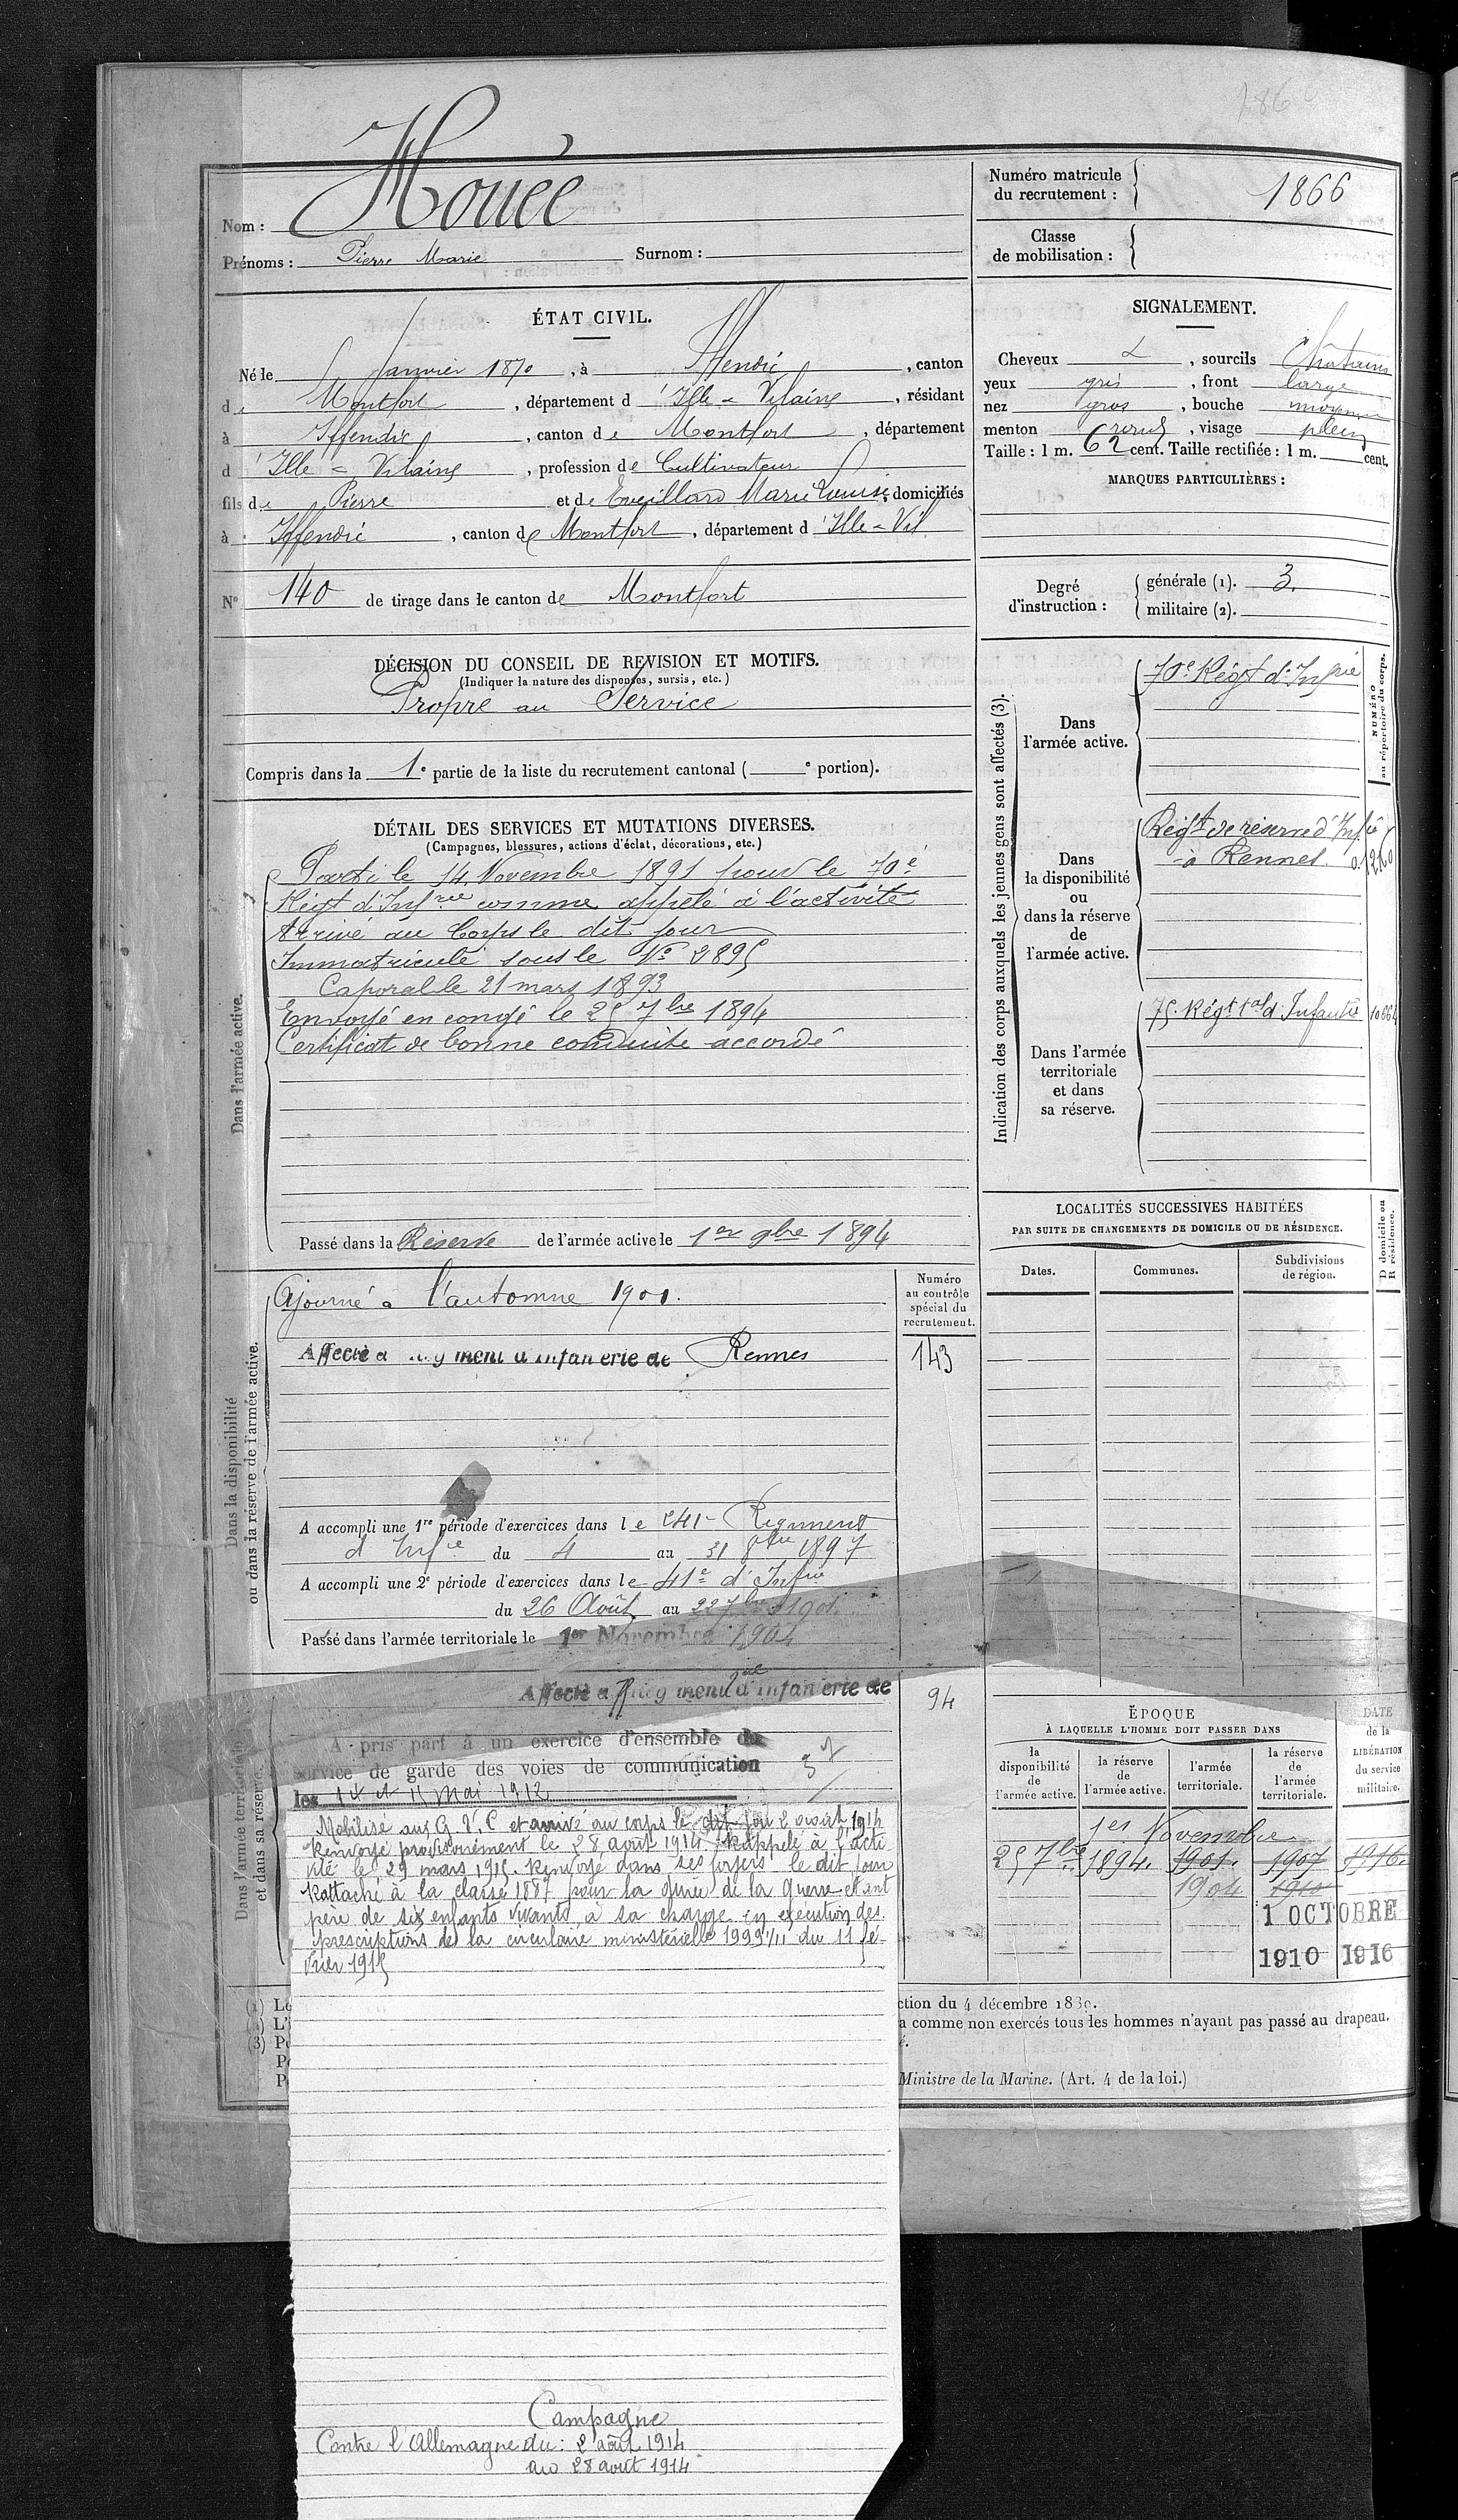 1866
Nom : Houée
Prénoms : Pierre Marie Surnom :
Numéro matricule
du recrutement : 1866
Classe
de mobilisation :
ÉTAT CIVIL.
Né le 5 Janvier 1870, à Iffendic, canton
de Montfort, département d'Ille-Vilaine, résidant
à Iffendic, canton de Montfort, département
d'Ille-Vilaine, profession de Cultivateur
fils de Pierre et de Eveillard Marie Louise, domiciliés
à Iffendic, canton de Montfort, département d'Ille-Vil
N° 140 de tirage dans le canton de Montfort
SIGNALEMENT.
Cheveux &, sourcils Châtains
yeux gris, front large
nez gros, bouche moyenne
menton rond, visage plein
Taille : 1 m. 62 cent. Taille rectifiée : 1 m. cent.
MARQUES PARTICULIÈRES :
Degré
d'instruction :
générale (1). 3.
militaire (2).
DÉCISION DU CONSEIL DE REVISION ET MOTIFS.
(Indiquer la nature des dispenses, sursis, etc.)
Propre au Service
Compris dans la 1e partie de la liste du recrutement cantonal ( e portion).
DÉTAIL DES SERVICES ET MUTATIONS DIVERSES.
(Campagnes, blessures, actions d'éclat, décorations, etc.)
Dans l'armée active.
Parti le 14 Novembre 1891 pour le 70e
Régt d'Infrie comme appelé à l'activité
Arrivé au Corps le dit jour
Immatriculé sous le No 2895
Caporal le 21 mars 1893
Envoyé en congé le 25 7bre 1894
Certificat de bonne conduite accordé
Passé dans la Réserve de l'armée active le 1er 9bre 1894
Indication des corps auxquels les jeunes gens sont affectés (3).
NUMÉRO
au répertoire du corps.
Dans
l'armée active.
70e Régt d'Infrie
Dans
la disponibilité
ou
dans la réserve
de
l'armée active.
Régt de réserve d'Infie
à Rennes.
Dans l'armée
territoriale
et dans
sa réserve.
75e Régt tal d'Infantie
LOCALITÉS SUCCESSIVES HABITÉES
PAR SUITE DE CHANGEMENTS DE DOMICILE OU DE RÉSIDENCE.
D domicile ou
R résidence.
Dates.
Communes.
Subdivisions
de région.
Dans la disponibilité
ou dans la réserve de l'armée active.
Ajourné à l'automne 1901.
Numéro
au contrôle
spécial du
recrutement.
Affecté au Régiment d'Infanterie de Rennes
143
A accompli une 1re période d'exercices dans le 241e Régiment
d'Infie du 4 au 31 8bre 1897
A accompli une 2e période d'exercices dans le 41e d'Infrie
du 26 Août au 22 7bre 1901.
Passé dans l'armée territoriale le 1er Novembre 1904
Dans l'armée territoriale
et dans sa réserve.
Affecté au Régiment tal d'Infanterie de
94
A pris part à un exercice d'ensemble du
service de garde des voies de communication
les 14 et 15 Mai 1912
Mobilisé aux G. V. C et arrivé au corps le dit jour 2 août 1914
Renvoyé provisoirement le 28 août 1914 Rappelé à l'acti
vité le 29 mars 1915. Renvoyé dans ses foyers le dit jour
Rattaché à la classe 1887 pour la durée de la guerre étant
père de six enfants vivants à sa charge en exécution des
prescriptions de la circulaire ministérielle 1999 1/11 du 11 fé
vrier 1915
ÉPOQUE
À LAQUELLE L'HOMME DOIT PASSER DANS
DATE
de la
LIBÉRATION
du service
militaire.
la
disponibilité
de
l'armée active.
la réserve
de
l'armée active.
l'armée
territoriale.
la réserve
de
l'armée
territoriale.
1er Novembre
25 7bre 1894. 1901. 1907 1916.
1904 1910
1 OCTOBRE
1910 1916
(1) Le
L'
(3) Po
ction du 4 décembre 1889.
a comme non exercés tous les hommes n'ayant pas passé au drapeau.
Ministre de la Marine. (Art. 4 de la loi.)
Campagne
Contre l'Allemagne du : 2 août 1914
au 28 août 1914